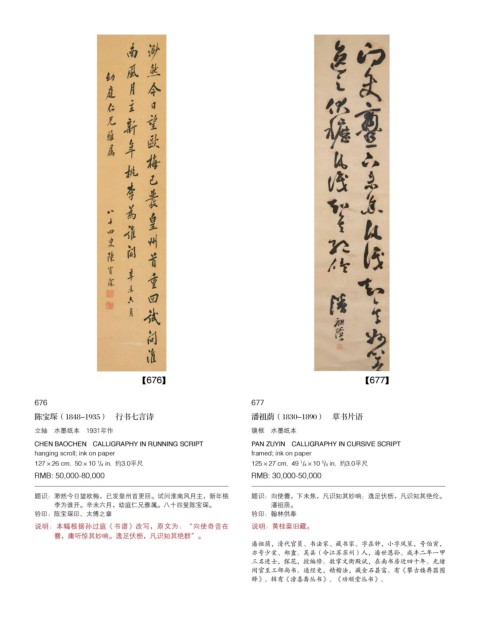 【676】
【677】
676
陈宝琛(1848-1935) 行书七言诗
立轴 水墨纸本 1931年作
CHEN BAOCHEN CALLIGRAPHY IN RUNNING SCRIPT
hanging scroll; ink on paper
127×26 cm. 50×10 ¼ in. 约3.0平尺
RMB: 50,000-80,000
题识:渺然今日望欧梅,已发皇州首更回。试问淮南风月主,新年桃李为谁开。辛未六月,幼庭仁兄雅属。八十四叟陈宝琛。
钤印:陈宝琛印、太傅之章
说明:本幅根据孙过庭《书谱》改写,原文为:“向使奇音在爨,庸听惊其妙响。逸足伏枥,凡识知其绝群”。
677
潘祖荫(1830-1890) 草书片语
镜框 水墨纸本
PAN ZUYIN CALLIGRAPHY IN CURSIVE SCRIPT
framed; ink on paper
125×27 cm. 49 ¼×10 ⅝ in. 约3.0平尺
RMB: 30,000-50,000
题识:向使爨,下未焦,凡识知其妙响;逸足伏枥,凡识知其绝伦。
潘祖荫。
钤印:翰林供奉
说明:黄桂棻旧藏。
潘祖荫,清代官员、书法家、藏书家。字在钟,小字凤笙,号伯寅,亦号少棠、郑盦。吴县(今江苏苏州)人,潘世恩孙。咸丰二年一甲三名进士,探花,授编修。数掌文衡殿试,在南书房近四十年。光绪间官至工部尚书。通经史,精楷法,藏金石甚富。有《攀古楼彝器图释》。辑有《滂喜斋丛书》、《功顺堂丛书》。